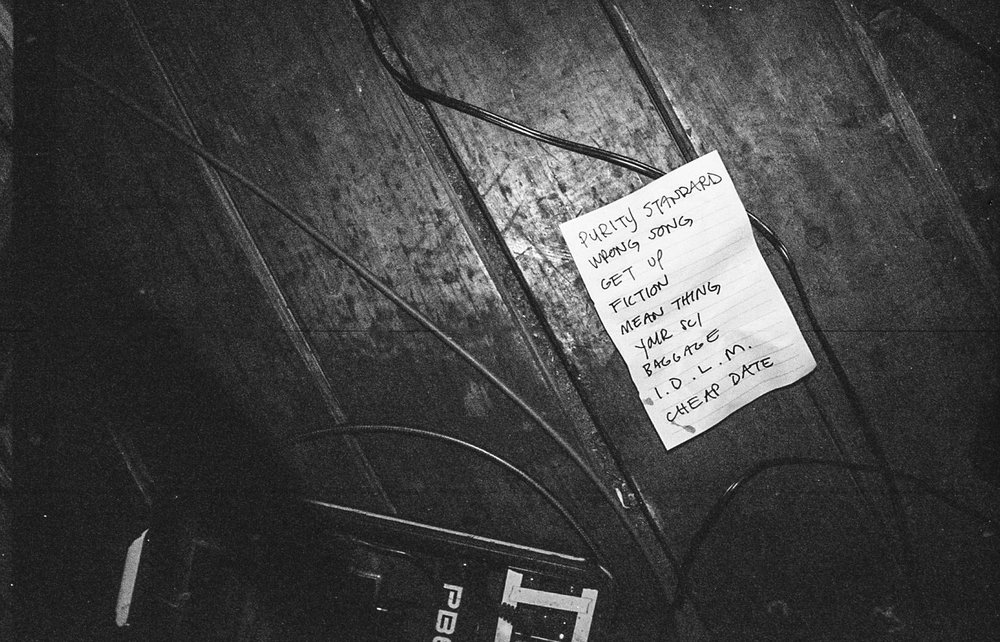 PURITY STANDARD
WRONG SONG
GET UP
FICTION
MEAN THING
YOUR SCI
BAGGAGE
I.D.L.M.
CHEAP DATE